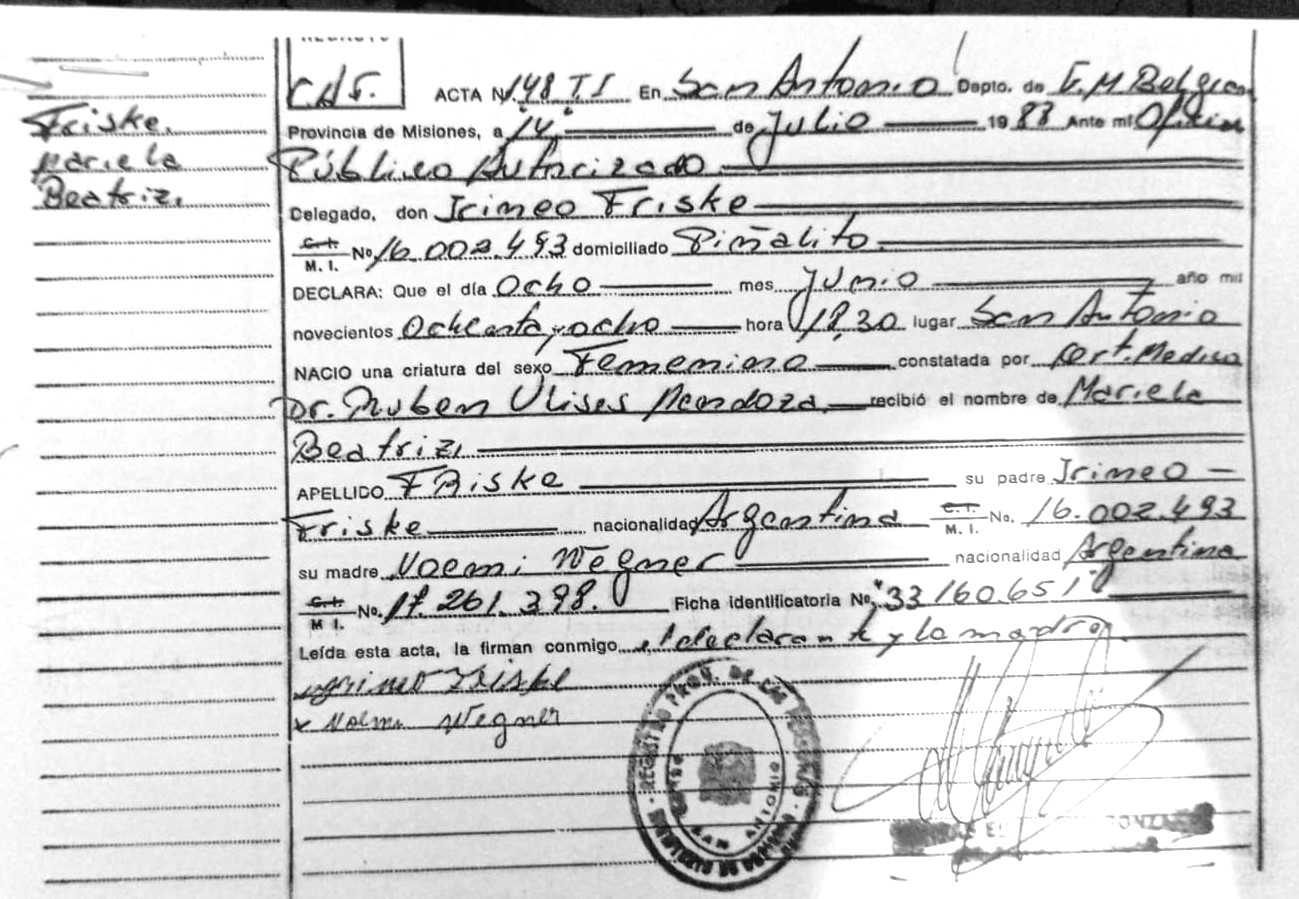 Friske.
Mariela
Beatriz.
C.N.F.
ACTA Nº 148 T I En San Antonio Depto. de G. M Belgrano
Provincia de Misiones, a "14" de Julio 19 88 Ante mi Oficial
Público Autorizado
Delegado, don Irineo Friske
C. I. M. I. No 16.002.493 domiciliado Piñalito
DECLARA: Que el día Ocho mes Junio año mil
novecientos Ochenta y ocho hora 18,30 lugar San Antonio
NACIO una criatura del sexo Femenino constatada por Cert. Medico
Dr. Ruben Ulises Mendoza recibió el nombre de Mariela
Beatriz.
APELLIDO FRiske su padre Irineo
Friske nacionalidad Argentina C. I. M. I. No. 16.002.493
su madre Noemi Wegner nacionalidad Argentina
C. I. M I. No. 17.261.398. Ficha identificatoria No "33160.651"
Leída esta acta, la firman conmigo el declarante y la madre.
Irineo Friske
x Noemi Wegner
SAN ANTONIO